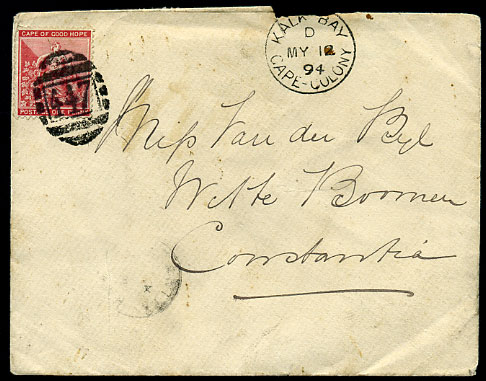 CAPE OF GOOD HOPE
POSTAGE ONE PENNY
KALK BAY
D
MY 12
94
CAPE-COLONY
Miss Van der Byl
Witte Boomen
Constantia